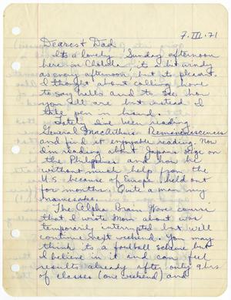 7. III. 71
Dearest Dad,
It's a lovely Sunday afternoon
here in Chelsea. It's a bit windy
as every afternoon, but it's pleasant.
I thought about calling home
to say hello and to see how
you all are but instead I
take pen in hand.
Lately I've been reading
General MacArthur's Reminiscences
and find it enjoyable reading. Now
I'm reading about Japan, Bataan
the Philippines and how he
without much help from the
U.S. because of Europe held out
for months. Quite a man my
namesake.
The Alpha Brain Wave course
that I wrote Mom about was
temporarily interrupted but we'll
continue next weekend. You may
think it's foolish school but
I believe in it and can feel
results already after only 9 hrs
of classes (one weekend) and